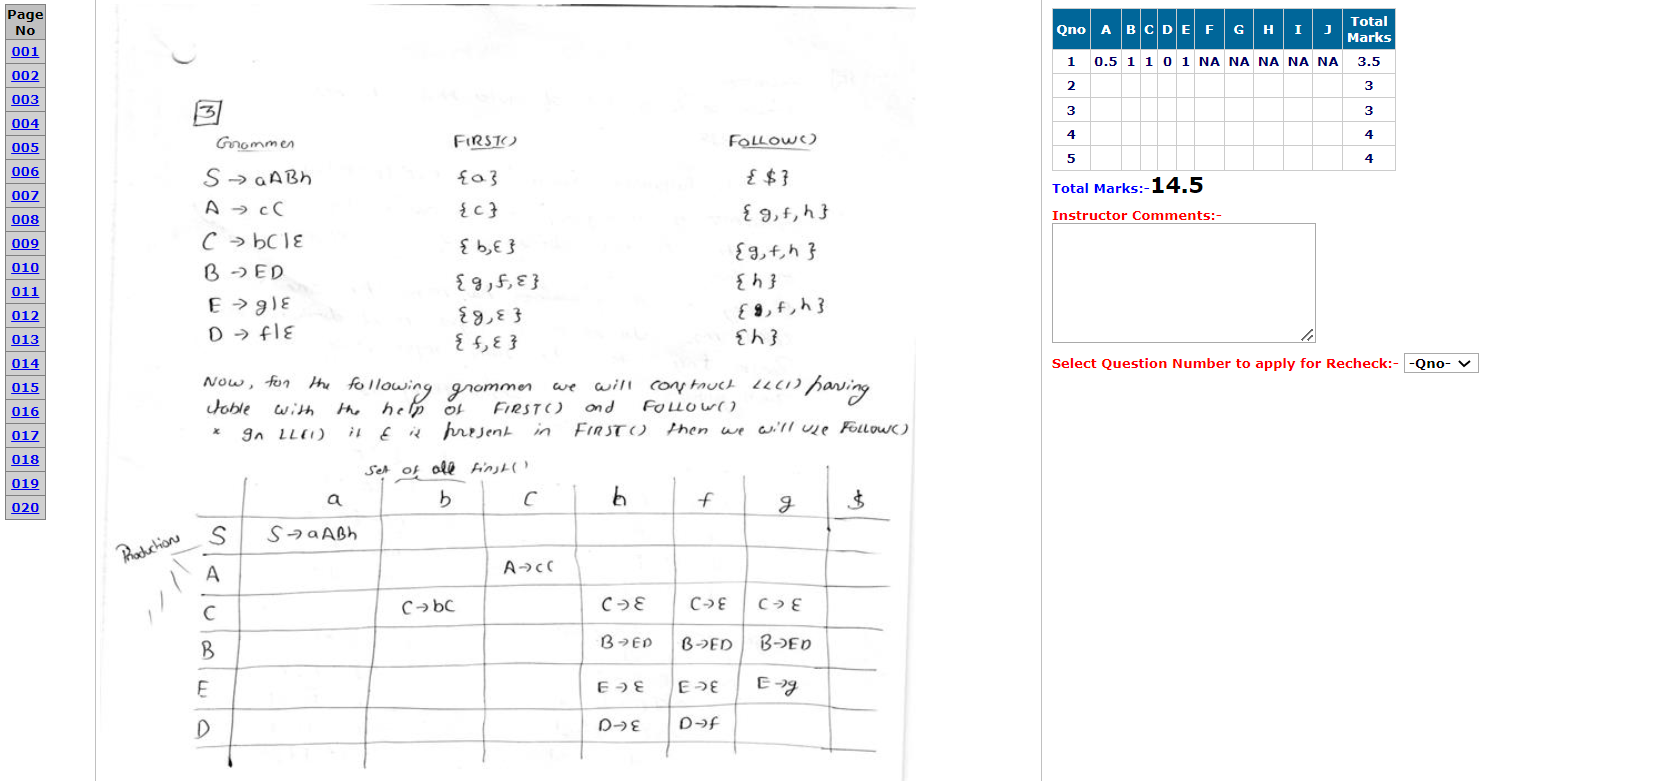 Page
No
001
002
003
004
005
006
007
008
009
010
011
012
013
014
015
016
017
018
019
020
3
Grammer FIRST() FOLLOW()
S → aABh {a} {$}
A → cC {c} {g,f,h}
C → bC|ε {b,ε} {g,f,h}
B → ED {g,f,ε} {h}
E → g|ε {g,ε} {f,h}
D → f|ε {f,ε} {h}
Now, for the following grammer we will construct LL(1) parsing
table with the help of FIRST() and FOLLOW()
* In LL(1) if ε is present in FIRST() then we will use FOLLOW()
Set of all first()
a b c h f g $
Productions
S S→aABh
A A→cC
C C→bC C→ε C→ε C→ε
B B→ED B→ED B→ED
E E→ε E→ε E→g
D D→ε D→f
Qno A B C D E F G H I J Total Marks
1 0.5 1 1 0 1 NA NA NA NA NA 3.5
2 3
3 3
4 4
5 4
Total Marks:-14.5
Instructor Comments:-
Select Question Number to apply for Recheck:- -Qno-